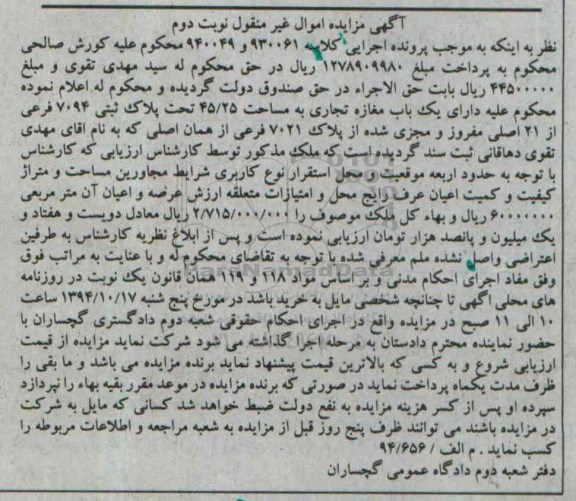 آگهی مزایده اموال غیر منقول نوبت دوم
نظر به اینکه به موجب پرونده اجرایی کلاسه ۹۳۰۰۶۱ و ۹۴۰۰۴۹ محکوم علیه کورش صالحی
محکوم به پرداخت مبلغ ۱۲۷۸۹۰۹۹۸۰ ریال در حق محکوم له سید مهدی تقوی و مبلغ
۴۴۵۰۰۰۰۰ ریال بابت حق الاجراء در حق صندوق دولت گردیده و محکوم له اعلام نموده
محکوم علیه دارای یک باب مغازه تجاری به مساحت ۴۵/۲۵ تحت پلاک ثبتی ۷۰۹۴ فرعی
از ۲۱ اصلی مفروز و مجزی شده از پلاک ۷۰۲۱ فرعی از همان اصلی که به نام اقای مهدی
تقوی دهاقانی ثبت سند گردیده است که ملک مذکور توسط کارشناس ارزیابی که کارشناس
با توجه به حدود اربعه موقعیت و محل استقرار نوع کاربری شرایط مجاورین مساحت و متراژ
کیفیت و کمیت اعیان عرف رایج محل و امتیازات متعلقه ارزش عرصه و اعیان آن متر مربعی
۶۰۰۰۰۰۰۰ ریال و بهاء کل ملک موصوف را ۲/۷۱۵/۰۰۰/۰۰۰ ریال معادل دویست و هفتاد و
یک میلیون و پانصد هزار تومان ارزیابی نموده است و پس از ابلاغ نظریه کارشناس به طرفین
اعتراضی واصل نشده ملم معرفی شده با توجه به تقاضای محکوم له و با عنایت به مراتب فوق
وفق مفاد اجرای احکام مدنی و بر اساس مواد ۱۱۸ و ۱۱۹ همان قانون یک نوبت در روزنامه
های محلی اگهی تا چنانچه شخصی مایل به خرید باشد در مورخ پنج شنبه ۱۳۹۴/۱۰/۱۷ ساعت
۱۰ الی ۱۱ صبح در مزایده واقع در اجرای احکام حقوقی شعبه دوم دادگستری گچساران با
حضور نماینده محترم دادستان به مرحله اجرا گذاشته می شود شرکت نماید مزایده از قیمت
ارزیابی شروع و به کسی که بالاترین قیمت پیشنهاد نماید برنده مزایده می باشد و ما بقی را
ظرف مدت یکماه پرداخت نماید در صورتی که برنده مزایده در موعد مقرر بقیه بهاء را نپردازد
سپرده او پس از کسر هزینه مزایده به نفع دولت ضبط خواهد شد کسانی که مایل به شرکت
در مزایده باشند می توانند ظرف پنج روز قبل از مزایده به شعبه مراجعه و اطلاعات مربوطه را
کسب نماید . م الف / ۹۴/۶۵۶
دفتر شعبه دوم دادگاه عمومی گچساران
ParsNamadData